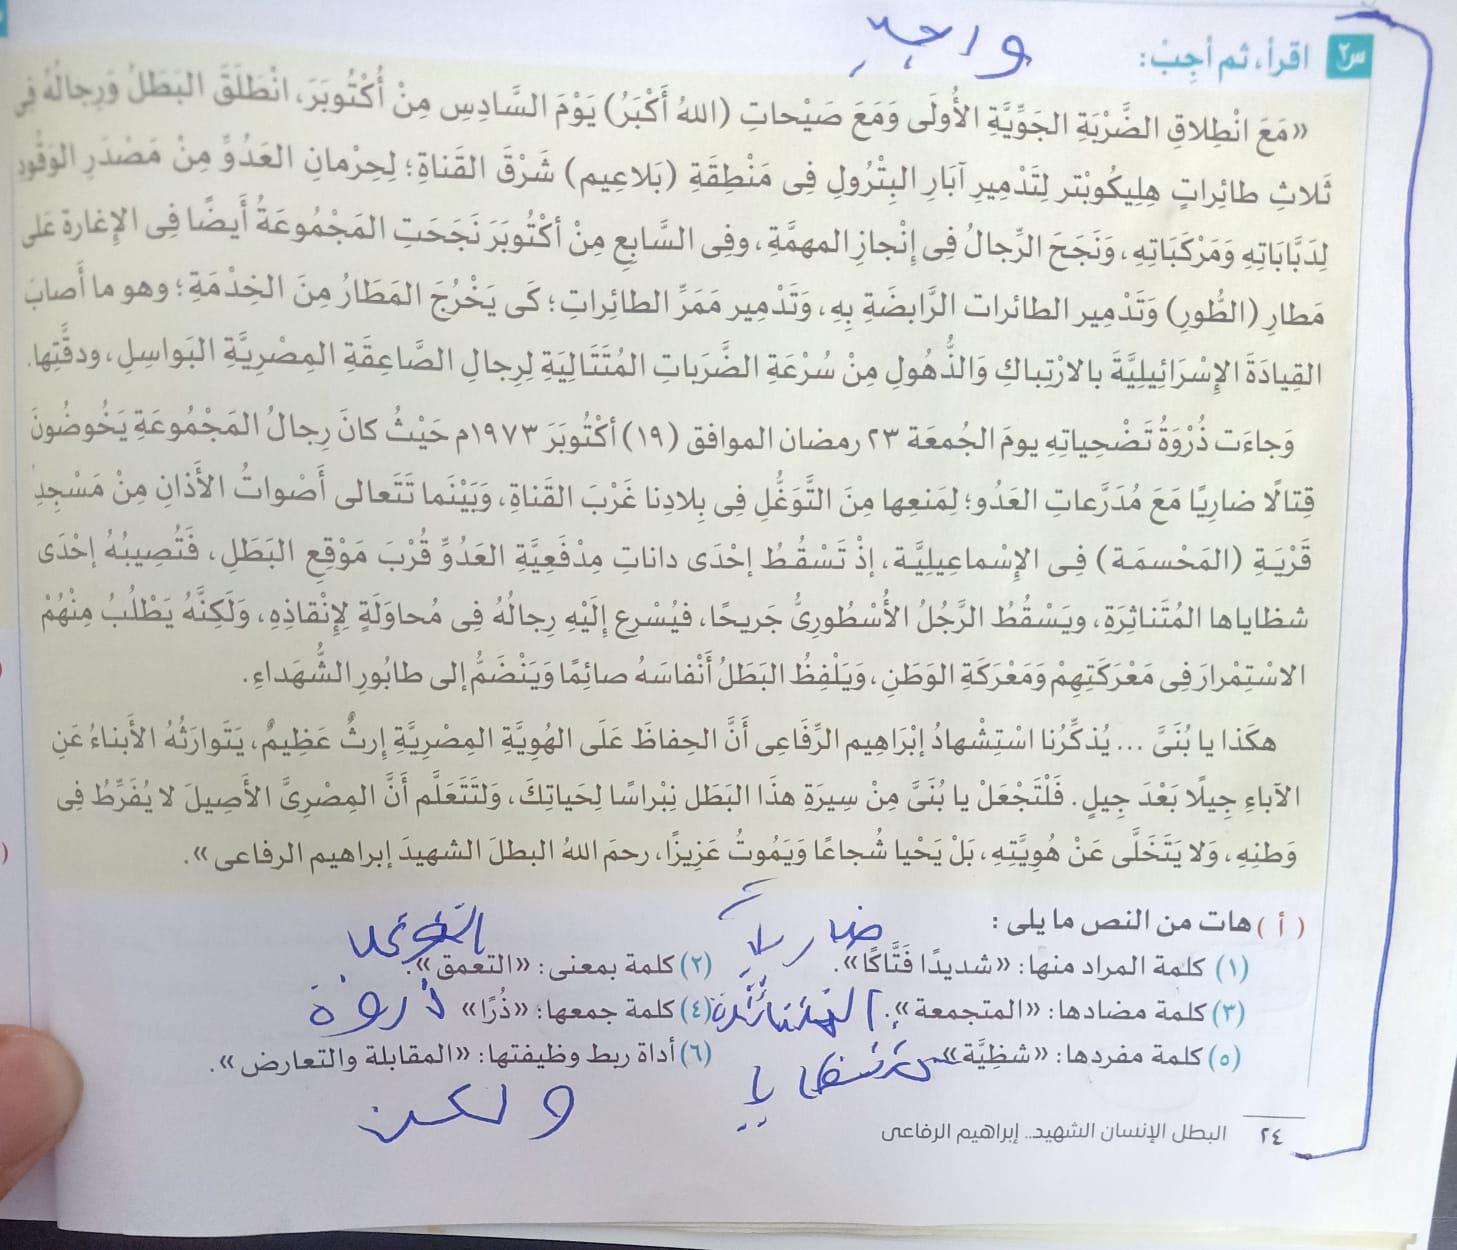 واجب
س٢ اقرأ، ثم أجِبْ:
«مَعَ انْطِلاقِ الضَّرْبَةِ الجَوِّيَّةِ الأُولَى وَمَعَ صَيْحاتِ (اللهُ أَكْبَرُ) يَوْمَ السَّادِسِ مِنْ أُكْتُوبَرَ، انْطَلَقَ البَطَلُ وَرِجالُهُ فِى
ثَلاثِ طائِراتِ هِلِيكُوبْتر لِتَدْمِيرِ آبَارِ البِتْرُولِ فِى مَنْطِقَةِ (بَلاعِيم) شَرْقَ القَناةِ؛ لِحِرْمانِ العَدُوِّ مِنْ مَصْدَرِ الوَقُودِ
لِدَبَّابَاتِهِ وَمَرْكَبَاتِهِ، وَنَجَحَ الرِّجالُ فِى إنْجازِ المهمَّةِ، وفِى السَّابِعِ مِنْ أُكْتُوبَرَ نَجَحَتِ المَجْمُوعَةُ أَيضًا فِى الإغارةِ عَلَى
مَطارِ (الطُّورِ) وَتَدْمِيرِ الطائراتِ الرَّابِضَةِ بِهِ، وَتَدْمِيرِ مَمَرِّ الطائِراتِ؛ كَى يَخْرُجَ المَطَارُ مِنَ الخِدْمَةِ؛ وهو ما أصابَ
القِيادَةَ الإِسْرَائِيلِيَّةَ بالارْتِباكِ وَالذُّهُولِ مِنْ سُرْعَةِ الضَّرَباتِ المُتَتَالِيَةِ لِرِجالِ الصَّاعِقَةِ المِصْرِيَّةِ البَواسِلِ، ودِقَّتِها.
وجاءت ذُرْوَةُ تَضْحِياتِهِ يومَ الجُمعَةِ ٢٣ رمضان الموافق (١٩) أكْتُوبَرَ ١٩٧٣م حَيْثُ كانَ رِجالُ المَجْمُوعَةِ يَخُوضُونَ
قِتالًا ضارِيًا مَعَ مُدَرَّعاتِ العَدُو؛ لِمَنعِها مِنَ التَّوَغُّلِ فِى بِلادِنا غَرْبَ القَناةِ، وَبَيْنَما تَتَعالَى أَصْواتُ الأَذَانِ مِنْ مَسْجِدِ
قَرْيَةِ (المَحْسمَة) فِى الإِسْماعِيلِيَّةِ، إذْ تَسْقُطُ إحْدَى داناتِ مِدْفَعِيَّةِ العَدُوِّ قُرْبَ مَوْقِعِ البَطَلِ، فَتُصِيبُهُ إحْدَى
شظاياها المُتَناثِرَةِ، وَيَسْقُطُ الرَّجُلُ الأُسْطُورِىُّ جَرِيحًا، فيُسْرِع إلَيْهِ رِجالُهُ فِى مُحاوَلَةٍ لإِنْقاذِهِ، وَلَكِنَّهُ يَطْلُبُ مِنْهُمْ
الاسْتِمْرارَ فِى مَعْرَكَتِهِمْ وَمَعْرَكَةِ الوَطَنِ، وَيَلْفِظُ البَطَلُ أَنْفاسَهُ صائِمًا وَيَنْضَمُّ إلى طابُورِ الشُّهَداءِ.
هكَذا يا بُنَىَّ ... يُذَكِّرُنا اسْتِشْهادُ إبْرَاهِيم الرِّفَاعِى أَنَّ الحِفاظَ عَلَى الهُوِيَّةِ المِصْرِيَّةِ إِرثٌ عَظِيمٌ، يَتَوارَثُهُ الأَبناءُ عَنِ
الآباءِ جِيلًا بَعْدَ جِيلٍ. فَلْتَجْعَلْ يا بُنَىَّ مِن سِيرَةِ هَذا البَطَلِ نِبْراسًا لِحَياتِكَ، وَلْتَتَعَلَّم أَنَّ المِصْرِىَّ الأَصِيلَ لا يُفَرِّطُ فِى
وَطنِهِ، وَلا يَتَخَلَّى عَنْ هُوِيَّتِهِ، بَلْ يَحْيا شُجاعًا وَيَمُوتُ عَزِيزًا، رحِم اللهُ البطلَ الشهيدَ إبراهيم الرفاعى».
( أ ) هات من النص ما يلى :
ضاريًا
التوغل
(١) كلمة المراد منها: «شديدًا فَتَّاكًا». (٢) كلمة بمعنى: «التعمق».
(٣) كلمة مضادها: «المتجمعة». المتناثرة (٤) كلمة جمعها: «ذُرًا» ذروة
(٥) كلمة مفردها: «شظِيَّة» شظايا (٦) أداة ربط وظيفتها: «المقابلة والتعارض».
ولكن
٢٤ البطل الإنسان الشهيد.. إبراهيم الرفاعى